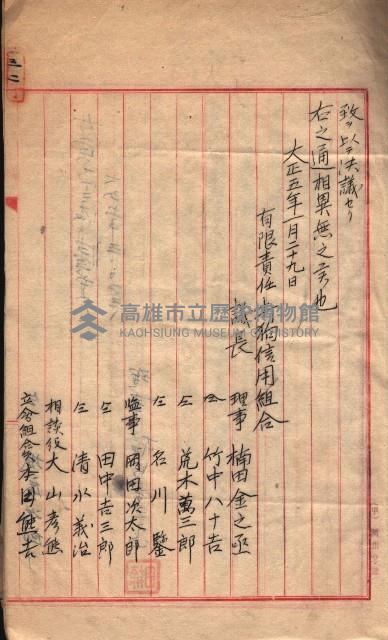 致ヲ以テ決議セリ
右之通相異無之候也
大正五年一月二十九日
有限責任打狗信用組合
議長
理事 楠田金之丞
仝 竹中八十吉
仝 荒木萬三郎
仝 名川鑒
監事 岡田次太郎
仝 田中吉三郎
仝 清水義治
相談役 大山彦熊
立會組合員 田熊吉
高雄市立歷史博物館
KAOHSIUNG MUSEUM OF HISTORY